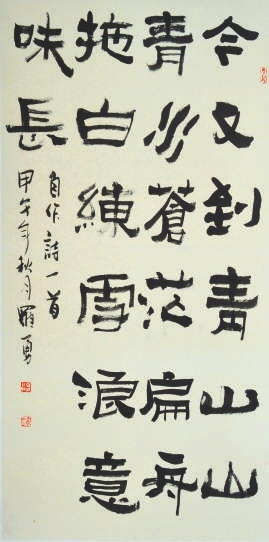 今又到青山山
青水蒼茫扁舟
拖白練雪浪意
味長
自作詩一首
甲午年秋月羅勇